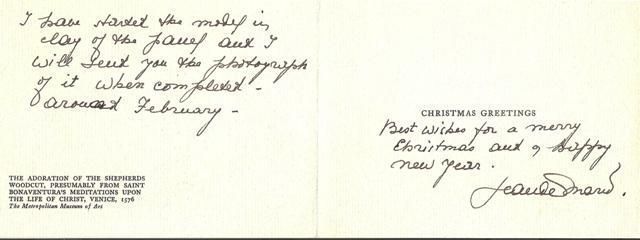 I have started the model in
clay of the panel and I
will send you the photograph
of it when completed -
around February -
THE ADORATION OF THE SHEPHERDS
WOODCUT, PRESUMABLY FROM SAINT
BONAVENTURA'S MEDITATIONS UPON
THE LIFE OF CHRIST, VENICE, 1576
The Metropolitan Museum of Art
CHRISTMAS GREETINGS
Best wishes for a merry
Christmas and a happy
new year.